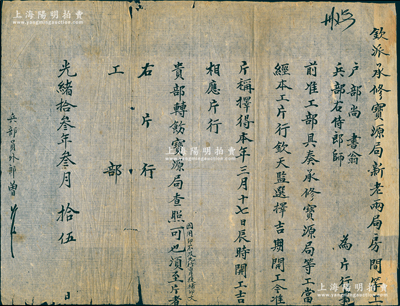 上海陽明拍賣
欽派承修寶源局新老兩局房間等工
戶部尚書翁
兵部右侍郎師
為片行
前准工部具奏承修寶源局等工當
經本工片行欽天監選擇吉期開工今准
片稱擇得本年三月十七日辰時開工吉
相應片行
貴部轉飭寶源局查照可也須至片者
右片行
工部
光緒拾叁年叁月拾伍日
兵部員外郎曾